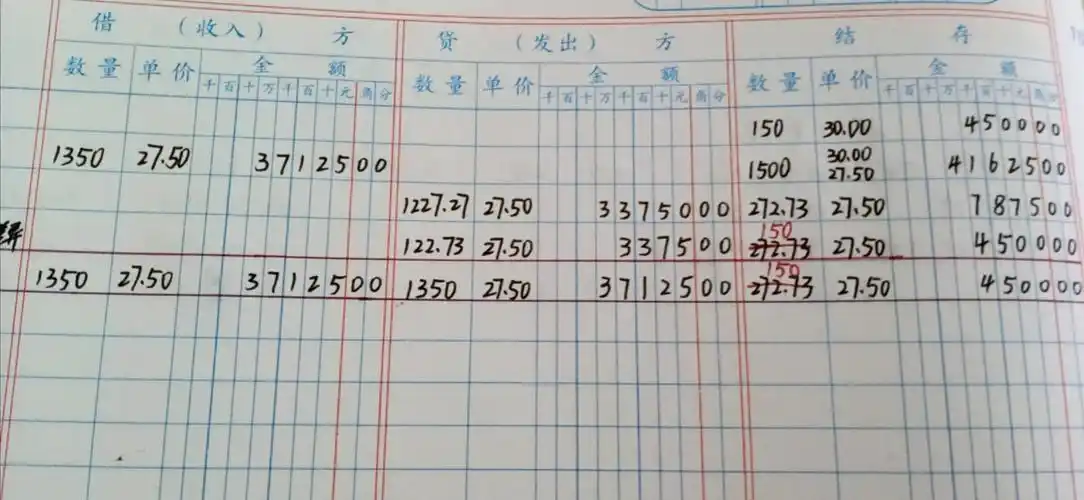 借 （收入） 方 贷 （发出） 方 结 存
数量 单价 金 额 数量 单价 金 额 数量 单价 金 额
千百十万千百十元角分 千百十万千百十元角分 千百十万千百十元角分
150 30.00 450000
1350 27.50 3712500 1500 30.00 27.50 4162500
1227.27 27.50 3375000 272.73 27.50 787500
122.73 27.50 337500 150 272.73 27.50 450000
1350 27.50 3712500 1350 27.50 3712500 150 272.73 27.50 450000